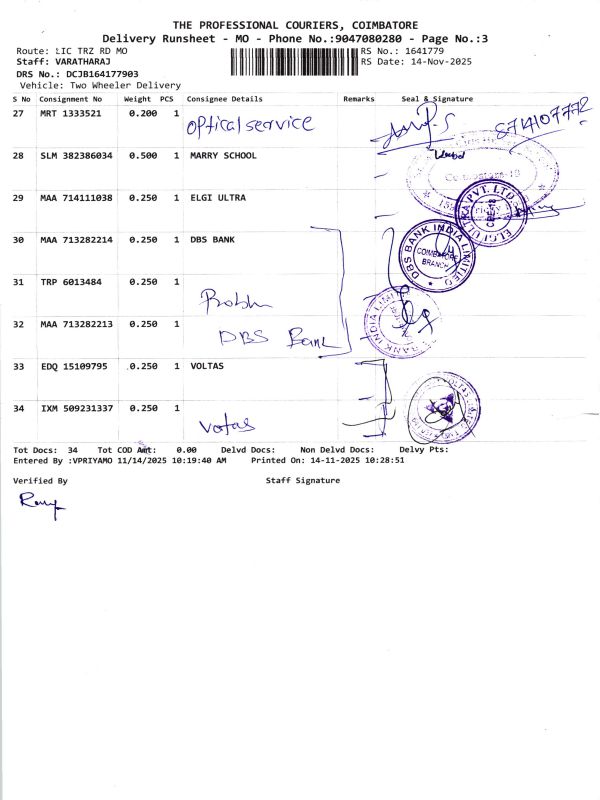 THE PROFESSIONAL COURIERS, COIMBATORE
Delivery Runsheet - MO - Phone No.:9047080280 - Page No.:3
Route: LIC TRZ RD MO
RS No.: 1641779
Staff: VARATHARAJ
RS Date: 14-Nov-2025
DRS No.: DCJB164177903
Vehicle: Two Wheeler Delivery
S No Consignment No Weight PCS Consignee Details Remarks Seal & Signature
27 MRT 1333521 0.200 1 Optical service 8714107772
28 SLM 382386034 0.500 1 MARRY SCHOOL
29 MAA 714111038 0.250 1 ELGI ULTRA
ELGI ULTRA PVT. LTD.
30 MAA 713282214 0.250 1 DBS BANK
DBS BANK INDIA LIMITED
COIMBATORE
BRANCH
31 TRP 6013484 0.250 1
32 MAA 713282213 0.250 1 DBS Bank
33 EDQ 15109795 0.250 1 VOLTAS
VOLTAS
34 IXM 509231337 0.250 1 Votas
Tot Docs: 34 Tot COD Amt: 0.00 Delvd Docs: Non Delvd Docs: Delvy Pts:
Entered By :VPRIYAMO 11/14/2025 10:19:40 AM Printed On: 14-11-2025 10:28:51
Verified By Staff Signature